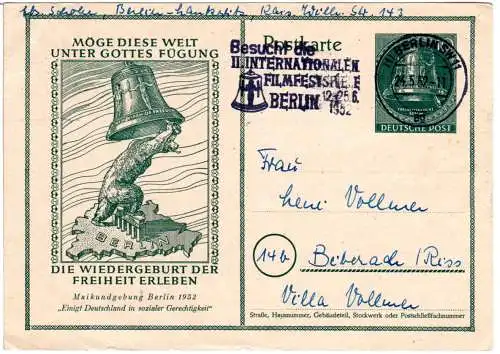 Berlin-Lankwitz, Kais. Wilh. Str. 143
MÖGE DIESE WELT
UNTER GOTTES FÜGUNG
BERLIN
DIE WIEDERGEBURT DER
FREIHEIT ERLEBEN
Maikundgebung Berlin 1952
„Einigt Deutschland in sozialer Gerechtigkeit"
Postkarte
Besucht die
II. INTERNATIONALEN
FILMFESTSPIELE
BERLIN 12.-25.6.
1952
BERLIN SW11
24.5.52
DEUTSCHE POST
Frau
Leni Vollmer
14b
Biberach/Riss
Villa Vollmer
Straße, Hausnummer, Gebäudeteil, Stockwerk oder Postschließfachnummer